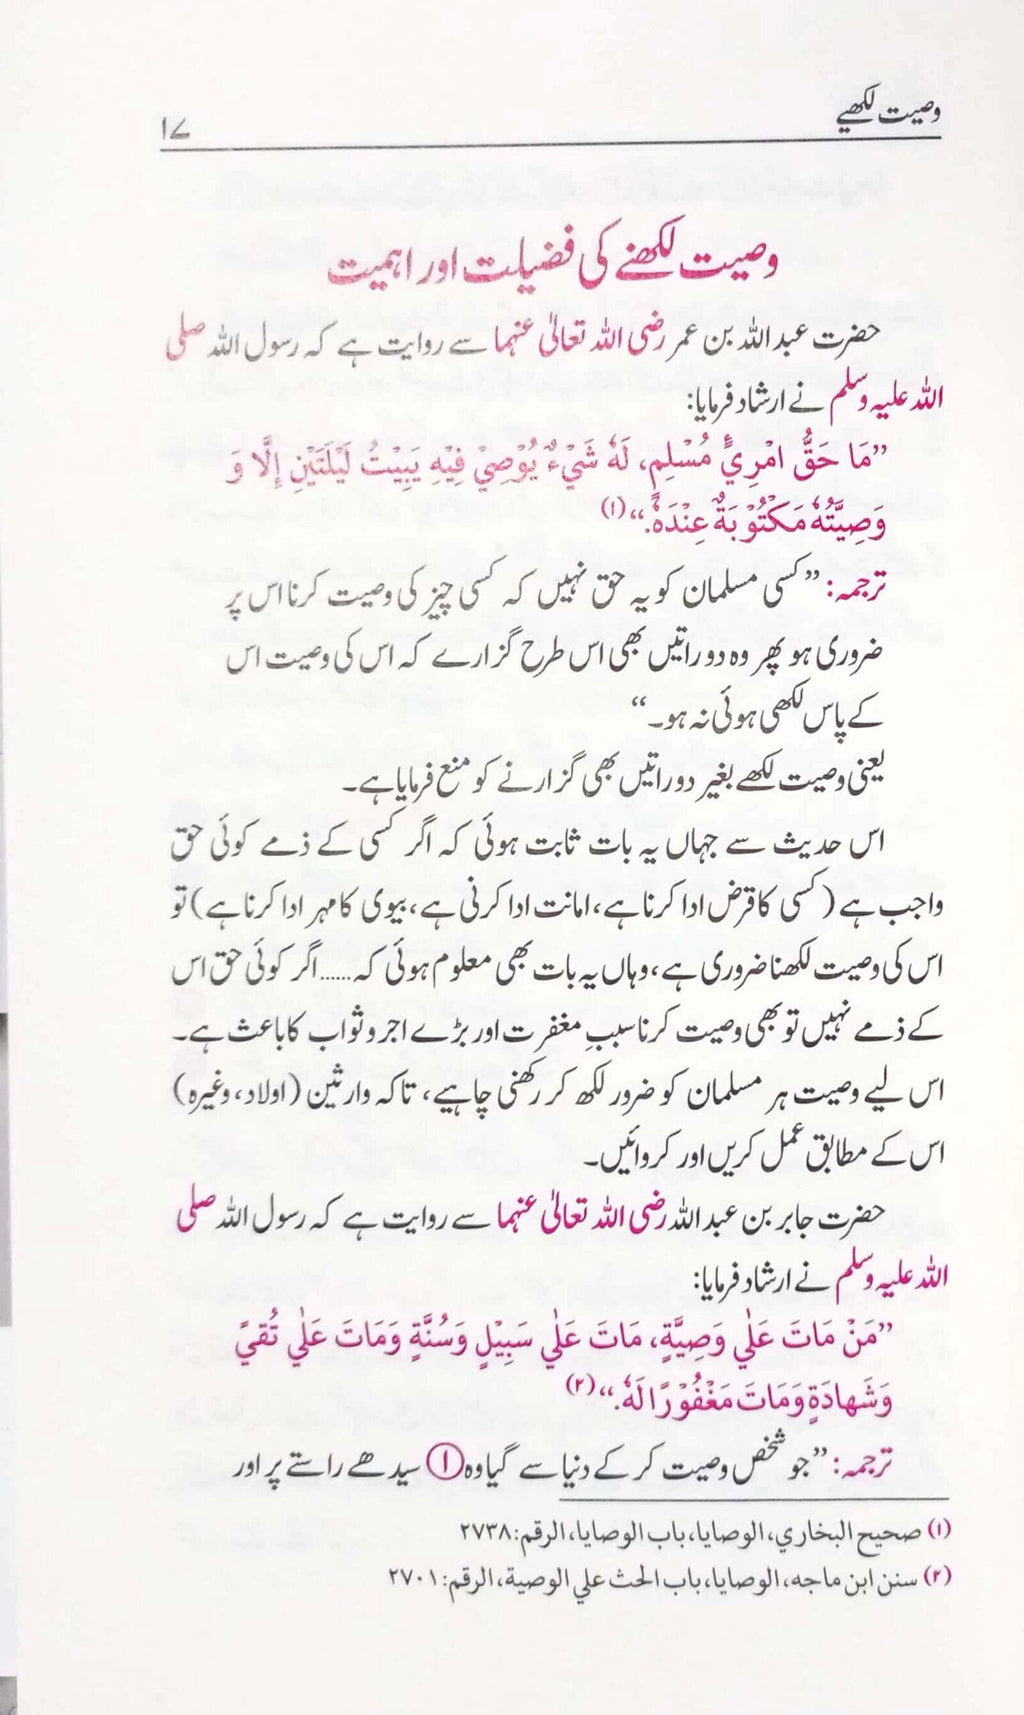 وصیت لکھیے
۱۷
وصیت لکھنے کی فضیلت اور اہمیت
حضرت عبد اللہ بن عمر رضی اللہ تعالیٰ عنہما سے روایت ہے کہ رسول اللہ صلی
اللہ علیہ وسلم نے ارشاد فرمایا:
”مَا حَقُّ امْرِئٍ مُسْلِمٍ، لَهٗ شَيْءٌ يُوْصِيْ فِيْهِ يَبِيْتُ لَيْلَتَيْنِ إِلَّا وَ
وَصِيَّتُهٗ مَكْتُوْبَةٌ عِنْدَهٗ.“(۱)
ترجمہ: ”کسی مسلمان کو یہ حق نہیں کہ کسی چیز کی وصیت کرنا اس پر
ضروری ہو پھر وہ دو راتیں بھی اس طرح گزارے کہ اس کی وصیت اس
کے پاس لکھی ہوئی نہ ہو۔“
یعنی وصیت لکھے بغیر دو راتیں بھی گزارنے کو منع فرمایا ہے۔
اس حدیث سے جہاں یہ بات ثابت ہوئی کہ اگر کسی کے ذمے کوئی حق
واجب ہے (کسی کا قرض ادا کرنا ہے، امانت ادا کرنی ہے، بیوی کا مہر ادا کرنا ہے) تو
اس کی وصیت لکھنا ضروری ہے، وہاں یہ بات بھی معلوم ہوئی کہ...... اگر کوئی حق اس
کے ذمے نہیں تو بھی وصیت کرنا سببِ مغفرت اور بڑے اجر و ثواب کا باعث ہے۔
اس لیے وصیت ہر مسلمان کو ضرور لکھ کر رکھنی چاہیے، تاکہ وارثین (اولاد، وغیرہ)
اس کے مطابق عمل کریں اور کروائیں۔
حضرت جابر بن عبد اللہ رضی اللہ تعالیٰ عنہما سے روایت ہے کہ رسول اللہ صلی
اللہ علیہ وسلم نے ارشاد فرمایا:
”مَنْ مَاتَ عَلٰي وَصِيَّةٍ، مَاتَ عَلٰي سَبِيْلٍ وَسُنَّةٍ وَمَاتَ عَلٰي تُقيً
وَشَهادَةٍ وَمَاتَ مَغْفُوْرًا لَهٗ.“(۲)
ترجمہ: ”جو شخص وصیت کر کے دنیا سے گیا وہ ① سیدھے راستے پر اور
(۱) صحیح البخاري، الوصایا، باب الوصایا، الرقم: ۲۷۳۸
(۲) سنن ابن ماجه، الوصایا، باب الحث علي الوصیة، الرقم: ۲۷۰۱